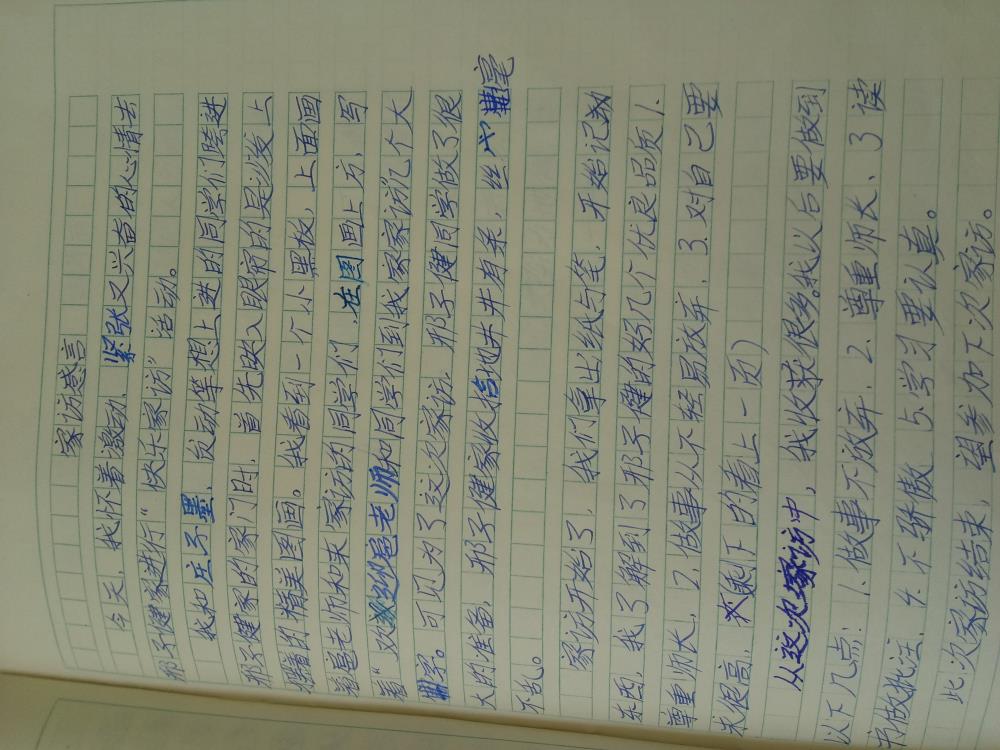 家访感言
今天，我怀着激动、紧张又兴奋的心情去
邢子健家进行“快乐家访”活动。
我和庄子墨，反动等想上进的同学们跨进
邢子健家的家门时，首先映入眼帘的是沙发上
播的精美图画。我看到一个小黑板，上面画
着老师和来家访的同学们，在图画上方，写
着“欢迎老师和同学们到我家家访”几个大
字。可见为了这次家访，邢子健同学做了很
大的准备，邢子健家收拾地井井有条，丝毫
不乱。
家访开始了，我们拿出纸与笔，开始记
东西，我了解到了邢子健的好几个优良品质1.
尊重师长，2.做事从不轻易放弃，3.对自己要
求很高，（剩下的看上一页）
从这次家访中，我收获很多。我以后要做到
以下几点：1.做事不放弃，2、尊重师长、3读
书做批注，4.不骄傲 5.学习要认真。
此次家访结束，望参加下次家访。